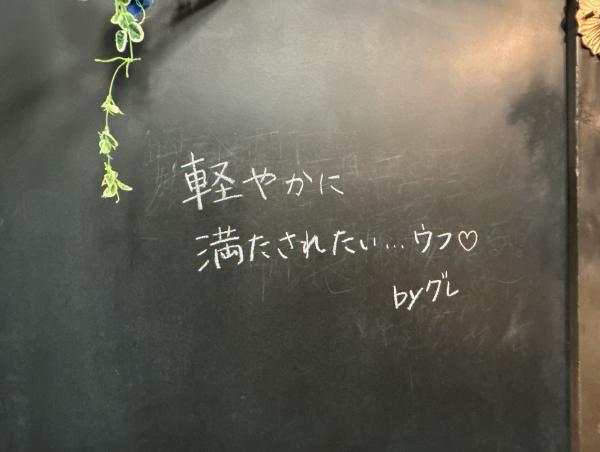 軽やかに
満たされたい…ウフ♡
byグレ